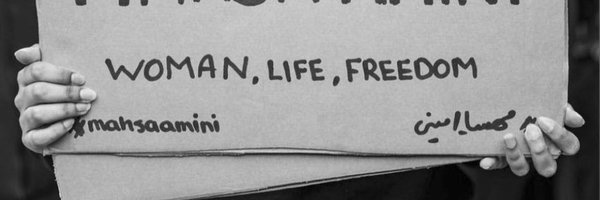 WOMAN, LIFE, FREEDOM
#mahsaamini مهسا امینی